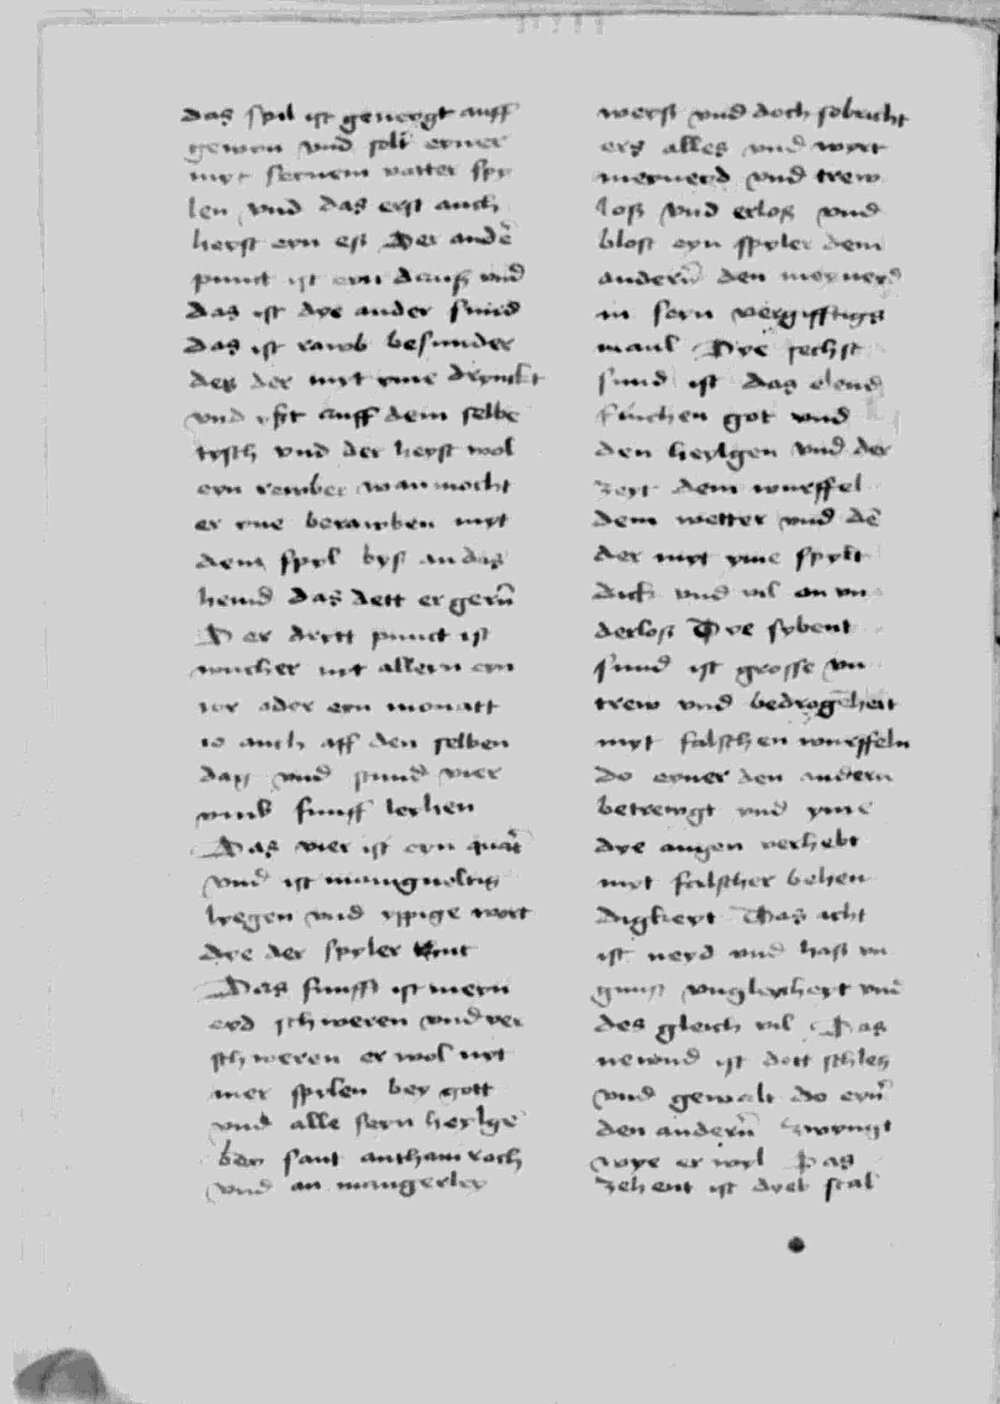 das spil ist geneygt auff
gewyn vnd solt eyner
myt seynem vatter spy
len vnd das erst auch
heyst eyn eß Der ander̄
punct ist eyn daus vnd
das ist dye ander sund
das ist rawb besunder
des der myt yme drynckt
vnd yßt auff dem selbē
tysch vnd der heyst wol
eyn rewber wan mocht
er yne berawben myt
dem spyl bys an das
hemd das dett er gern̄
Der drytt punct ist
wucher nyt alleyn eyn
ior oder eyn monatt
io auch aff den selben
dag vnd stund vier
vmb funff leyhen
Das vier ist eyn quat̄
vnd ist manigueltig
lyegen vnd yppige wort
dye der spyler
Das funfft ist meyn
eyd schweren vnd ver
schweren er wol nyt
mer spylen bey gott
vnd alle seyn heylgē
bey sant
vnd an mangerley
werß vnd doch sobricht
ers alles vnd wyrt
meyneyd vnd trew
loß vnd erloß vnd
blost eyn spyler dem
andern̄ den meyneyd
in seyn vergifftigs
maul Dye sechst
sund ist das elend
fluchen got vnd
den heylgen vnd der
zeyt dem wurffel
dem wetter vnd dē
der myt yme spylt
dick vnd vil on vn
derloß Dye sybent
sund ist grosse vn
trew vnd bedrogenheit
myt falschen wurffeln
do eyner den andern
betrewgt vnd yme
dye augen verhebt
myt falscher behen
digkeyt Das acht
ist neyd vnd haß vn
gunst vngleycheyt vnd
des gleich vil Das
newnd ist dott schleg
vnd gewalt do eyn̄
den andern̄ zwyngt
wye er wyl Das
zehent ist dyeb stal